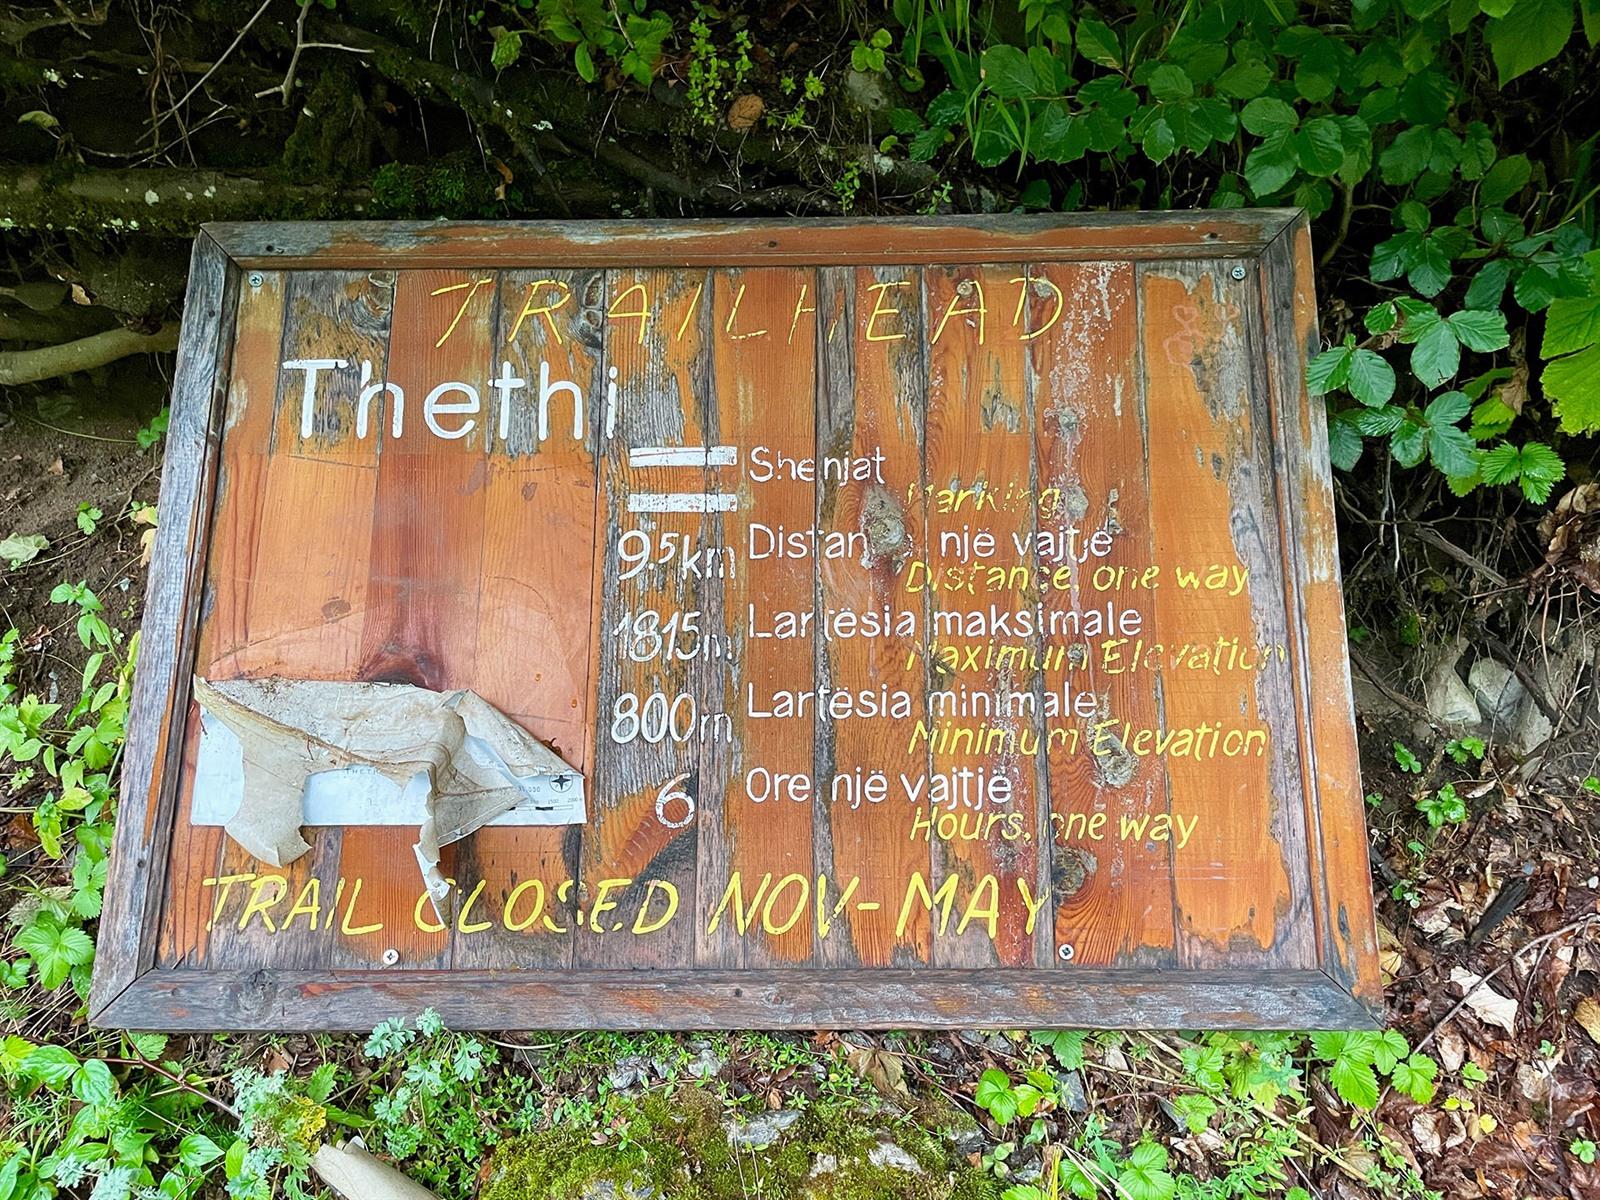 TRAILHEAD
Thethi
Shenjat
Marking
9.5km Distanca një vajtje
Distance, one way
1815m Lartësia maksimale
Maximum Elevation
800m Lartësia minimale
Minimum Elevation
6 Ore një vajtjë
Hours, one way
TRAIL CLOSED NOV-MAY